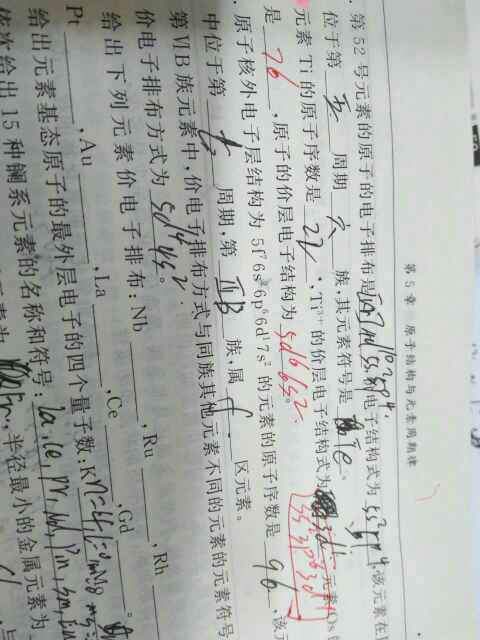 第5章 原子结构与元素周期律
. 第52号元素的原子的电子排布是[Kr]4d¹⁰5s²5p⁴,电子结构式为5s²5p⁴,该元素在
位于第 五 周期 六 族,其元素符号是 Te 。
元素 Ti 的原子序数是 22 ,Ti³⁺的价层电子结构式为 3d¹ 元素Os
3s²3p⁶3d¹
是 76 ,原子的价层电子结构为 5d⁶6s² 。
原子核外电子层结构为 5f⁷6s²6p⁶6d¹7s² 的元素的原子序数是 96 ,该
中位于第 七 周期,第 ⅢB 族,属 f 区元素。
第ⅥB族元素中,价电子排布方式与同族其他元素不同的元素的元素符号
价电子排布方式为 5d⁴6s² 。
给出下列元素价电子排布:Nb ,Ru ,Rh
Pt ,Au ,La ,Ce ,Gd 。
给出元素基态原子的最外层电子的四个量子数:K n=4 l=0 m=0
依次给出 15 种镧系元素的名称和符号: La, Ce, Pr, Nd, Pm, Sm, Eu
,半径最小的金属元素为